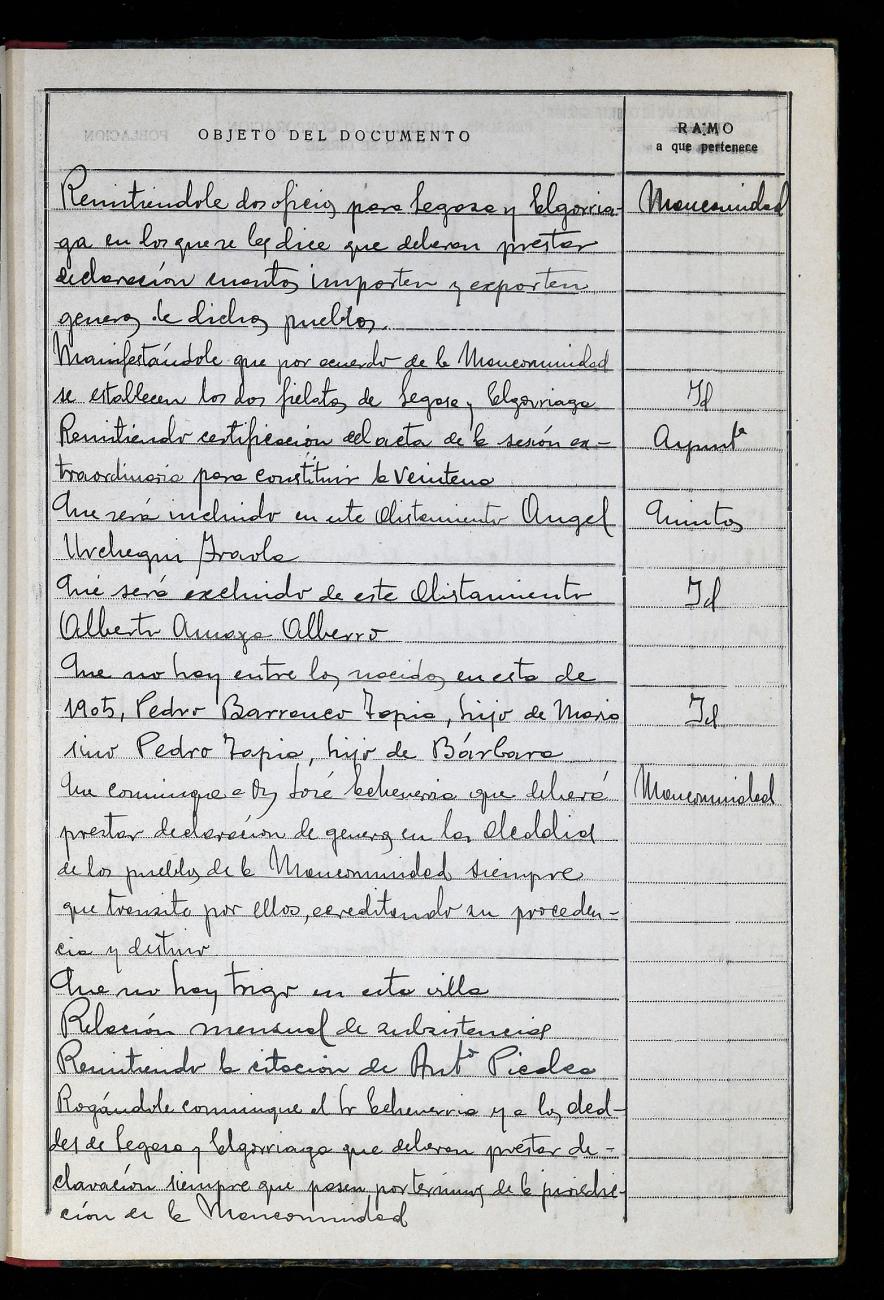 OBJETO DEL DOCUMENTO
RAMO
a que pertenece
Remitiendole dos oficios para Legasa y Elgorria- Mancomunidad
ga en los que se les dice que deberan prestar
declaración cuantos importen y exporten
generos de dichos pueblos.
Manifestándole que por acuerdo de la Mancomunidad
se establecen los dos fielatos de Legasa y Elgorriaga Id
Remitiendo certificación del acta de la sesión ex- Ayuntº
traordinaria para constituir la Veintena
Que será incluido en este Alistamiento Angel Quintos
Urchegui Iraola
Que será excluido de este Alistamiento Id
Alberto Amaya Alberro
Que no hay entre los nacidos en esta de
1905, Pedro Barranco Tapia, hijo de Maria Id
sino Pedro Tapia, hijo de Bárbara
Que comunique a Dn José Echeverria que deberá Mancomunidad
prestar declaración de generos en las Alcaldias
de los pueblos de la Mancomunidad siempre
que transite por ellos, acreditando su proceden-
cia y destino
Que no hay trigo en esta villa
Relación mensual de subsistencias
Remitiendo la citación de Antº
Rogándole comunique al Sr Echeverria y a los Alcal-
des de Legasa y Elgorriaga que deberan prestar de-
claración siempre que pasen por terminos de la jurisdic-
ción de la Mancomunidad